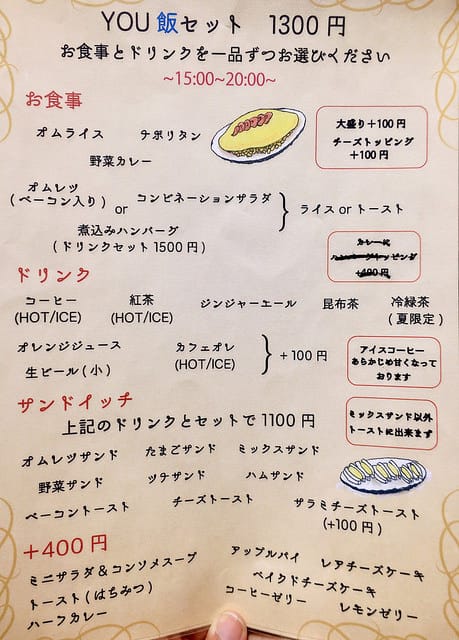 YOU 飯セット 1300 円
お食事とドリンクを一品ずつお選びください
~15:00~20:00~
お食事
オムライス チポリタン
野菜カレー
大盛り+100 円
チーズトッピング
+100 円
オムレツ
(ベーコン入り) or コンビネーションサラダ
煮込みハンバーグ
(ドリンクセット 1500 円)
ライス or トースト
カレーに
+400 円
ドリンク
コーヒー
(HOT/ICE)
紅茶
(HOT/ICE)
ジンジャーエール
昆布茶
冷緑茶
(夏限定)
オレンジジュース
生ビール(小)
カフェオレ
(HOT/ICE)
+100 円
アイスコーヒー
あらかじめ甘くなって
おります
サンドイッチ
上記のドリンクとセットで 1100 円
ミックスサンド以外
トーストに出来まず
オムレツサンド たまごサンド ミックスサンド
野菜サンド ツナサンド ハムサンド
ベーコントースト チーズトースト サラミチーズトースト
(+100 円)
+400 円
ミニサラダ＆コンソメスープ
トースト(はちみつ)
ハーフカレー
アップルパイ レアチーズケーキ
ベイクドチーズケーキ
コーヒーゼリー レモンゼリー